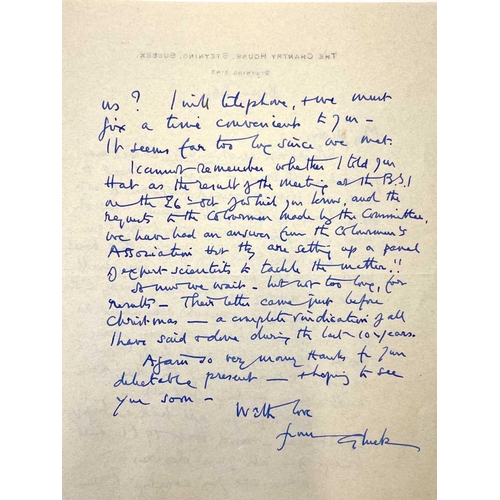 THE CHANTRY HOUSE, STEYNING, SUSSEX.
STEYNING
us? I will telephone, & we must
fix a time convenient to you —
It seems far too long since we met.
I cannot remember whether I told you
that as the result of the meeting at the B.S.I
on the 26th Oct of which you know, and the
request to the Colourmen made by the Committee,
we have had an answer from the Colourmen's
Association that they are setting up a panel
of expert scientists to tackle the matter!!
So now we wait — but not too long, for
results — Their letter came just before
Christmas — a complete vindication of all
I have said & done during the last 10 years.
Again so very many thanks for your
delectable present — & hoping to see
you soon —
With love
from Gluck